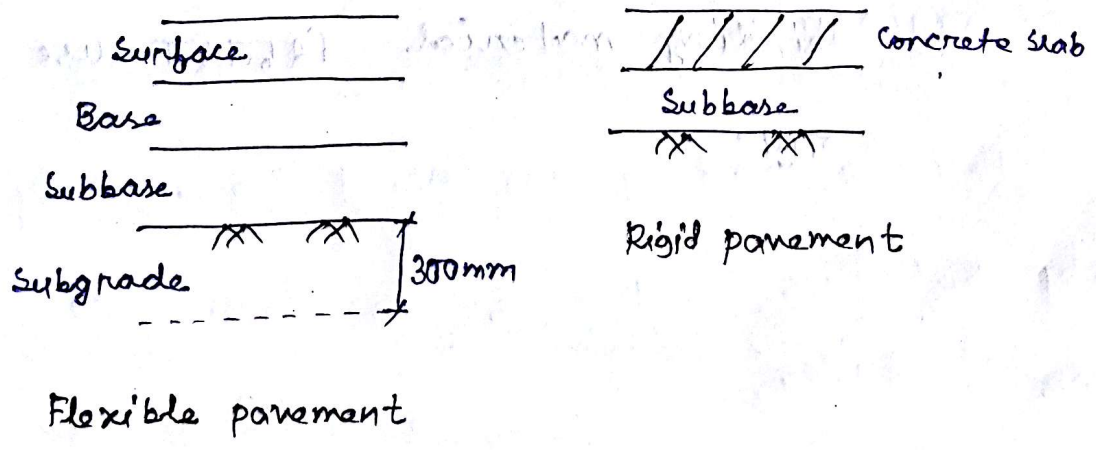 Surface
Base
Subbase
Subgrade
300mm
Flexible pavement
Concrete slab
Subbase
Rigid pavement